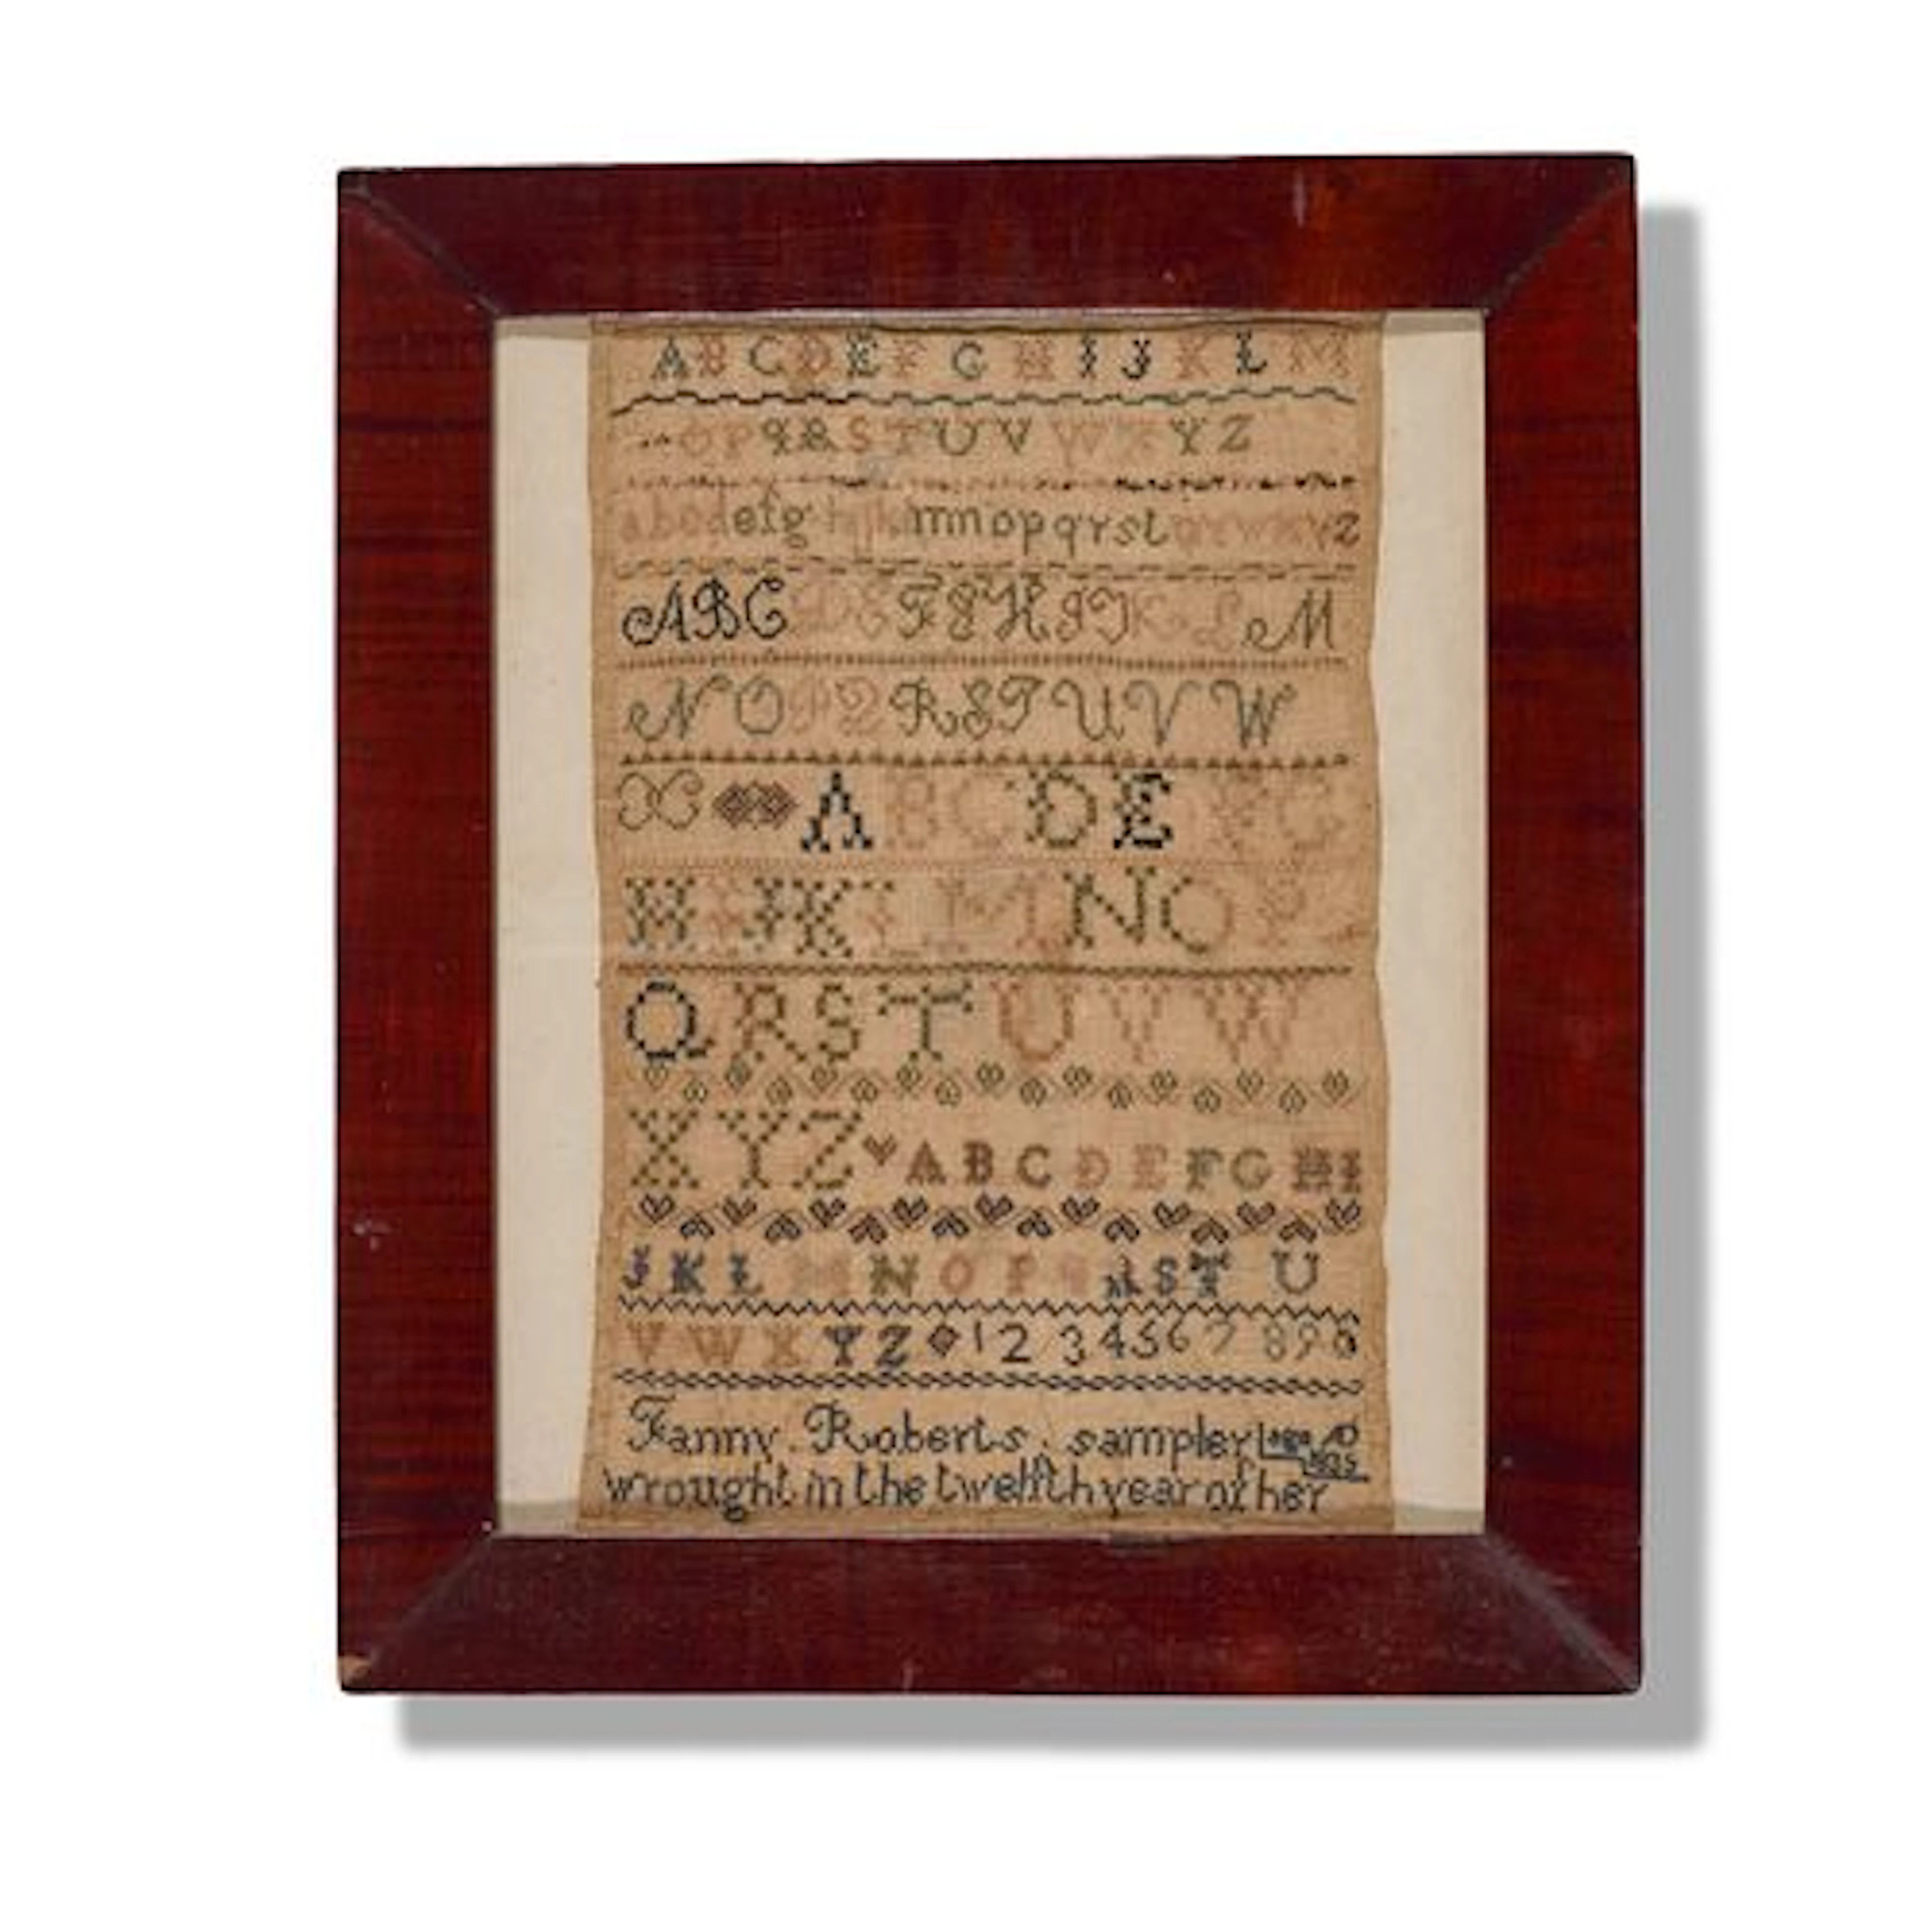 A B C D E F G H I J K L M
O P Q R S T U V W X Y Z
a b c d e f g h i j k l m n o p q r s t u v w x y z
A B C D E F G H I J K L M
N O P Q R S T U V W
X A B C D E F G
H I J K L M N O P
Q R S T U V W
X Y Z A B C D E F G H I
J K L M N O P Q R S T U
V W X Y Z 1 2 3 4 5 6 7 8 9
Fanny Roberts sampler age AD
wrought in the twelfth year of her